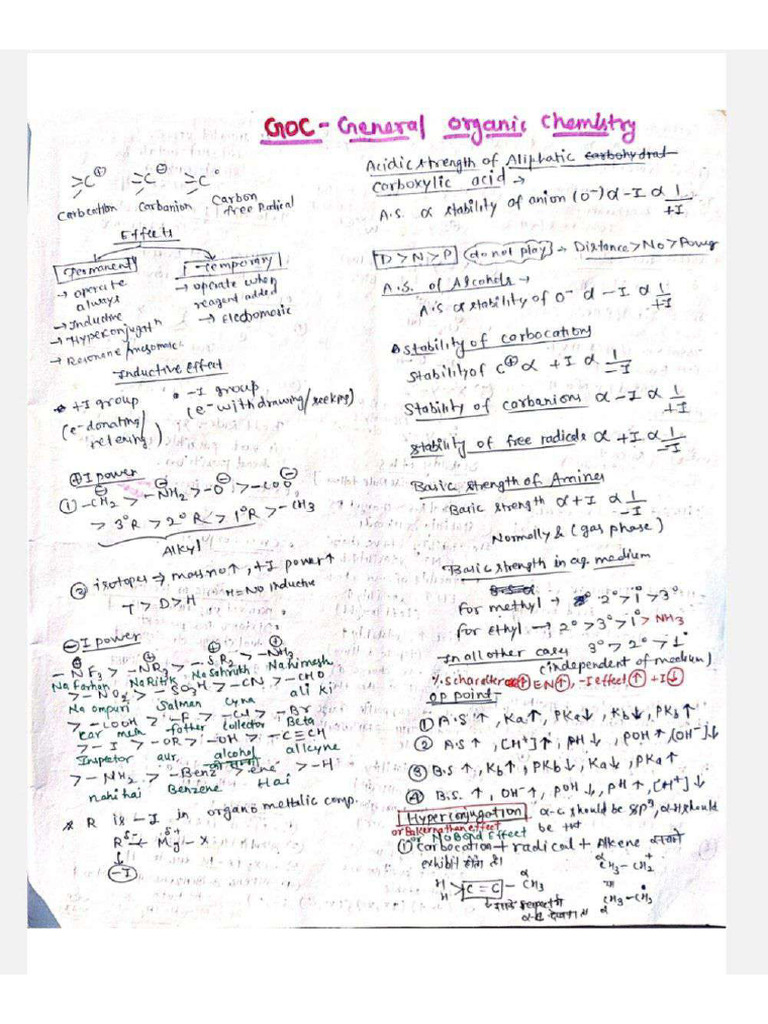 GOC - General Organic Chemistry
>C⊕ >C⊖ >C•
Carbocation Carbanion Carbon free Radical
Effects
Permanent
→ operate always
→ Inductive
→ Hyperconjugatn
→ Resonane/mesomeric
Temporary
→ operate when reagent added
→ Electromeric
Inductive Effect
• +I group
(e- donating/
relering)
• -I group
(e- withdrawing/seekps)
⊕I power
① -CH₂⊖ > -NH₂⊖ > -O⊖ > -COO⊖
> 3°R > 2°R > 1°R > -CH3
Alkyl
② isotopes → mass no↑, +I power↑
T > D > H H=No inductive
⊖I power
-NF₃⊕ > -NR₃⊕ > -SR₂⊕ > -NH₃⊕
Na Farhan Na Ritik Na Sahrukh Na himesh
> -NO₂ > -SO₃H > -CN > -CHO
Na ompuri Salman Cyna ali ki
> -COOH > -F > -Cl > -Br
Kar meh father collector Beta
> -I > -OR > -OH > -C≡CH
Inspetor aur alcohol alkyne
> -NH₂ > -Benz > ene > -H
nahi hai Benzene Hai
* R is -I in organo metallic comp.
R δ- ← Mg δ+ - X
↓
-I
Acidic strength of Aliphatic carbohydrat
carboxylic acid →
A.S. α stability of anion (O⁻) α -I α 1/+I
D > N > P (do not play) → Distance > No > Power
A.S. of Alcohols →
A.S α stability of O⁻ α -I α 1/+I
stability of carbocations
stability of C⊕ α +I α 1/-I
Stability of carbanions α -I α 1/+I
stability of free radicals α +I α 1/-I
Basic strength of Amines
Basic strength α +I α 1/-I
Normally & (gas phase)
Basic strength in aq. medium
For methyl → 2° > 1° > 3°
for ethyl → 2° > 3° > 1° > NH3
In all other cases 3° > 2° > 1°
(independent of medium)
% s charater ↑ EN↑, -I effect↑ +I↓
OP point -
① A.S ↑, Ka↑, PKa↓, Kb↓, PKb↑
② A.S ↑, [H+]↑, pH↓, pOH↑, [OH⁻]↓
③ B.S ↑, Kb↑, PKb↓, Ka↓, PKa↑
④ B.S. ↑, OH⁻↑, pOH↓, pH↑, [H+]↓
Hyperconjugation α-c should be sp³, α-H should
or Bakernathan effect be
or No Bond Effect
① carbocation + radical + Alkene
exhibit होता है।
H H > C = C - CH₃ α
α CH₃-CH₂+
या
CH₃-CH₂•
α